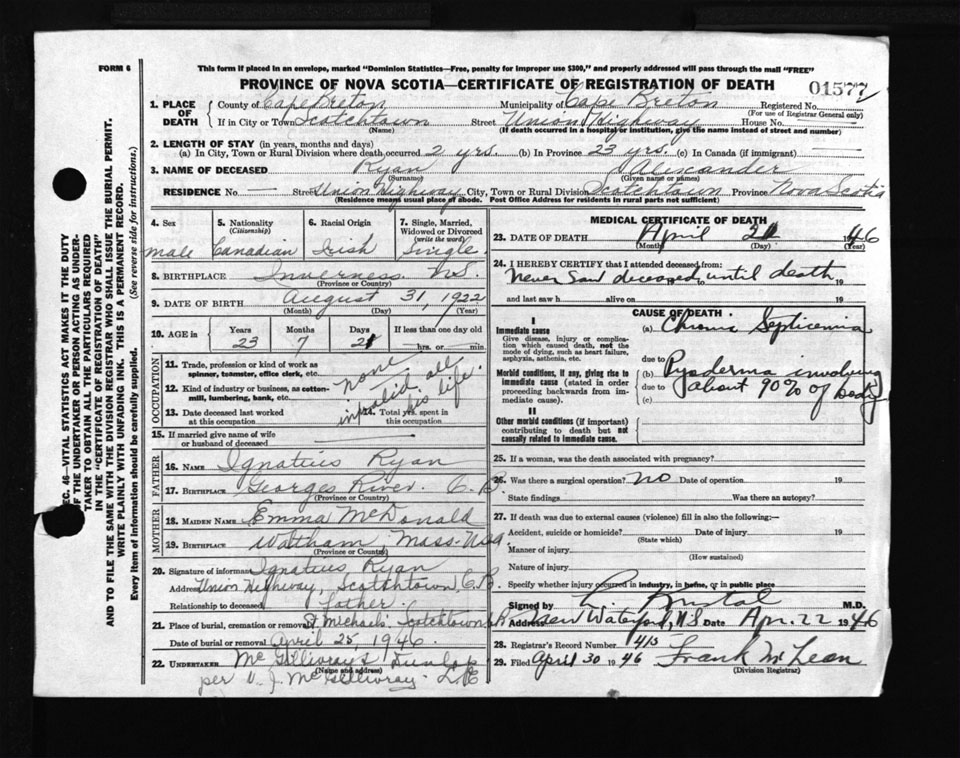 FORM 6
This form if placed in an envelope, marked "Dominion Statistics—Free, penalty for improper use $300," and properly addressed will pass through the mail "FREE"
PROVINCE OF NOVA SCOTIA—CERTIFICATE OF REGISTRATION OF DEATH
01577
1. PLACE OF DEATH County of Cape Breton Municipality of Cape Breton Registered No.
(For use of Registrar General only)
If in City or Town Scotchtown Street Union Highway House No.
(Name) (If death occurred in a hospital or institution, give the name instead of street and number)
2. LENGTH OF STAY (in years, months and days)
(a) In City, Town or Rural Division where death occurred 2 yrs. (b) In Province 23 yrs. (c) In Canada (if immigrant)
3. NAME OF DECEASED Ryan Alexander
(Surname) (Given name or names)
RESIDENCE No — Street Union Highway City, Town or Rural Division Scotchtown Province Nova Scotia
(Residence means usual place of abode. Post Office Address for residents in rural parts not sufficient)
4. Sex 5. Nationality (Citizenship) 6. Racial Origin 7. Single, Married, Widowed or Divorced (write the word)
male Canadian Irish Single
8. BIRTHPLACE Inverness N.S.
(Province or Country)
9. DATE OF BIRTH August 31, 1922
(Month) (Day) (Year)
10. AGE in Years Months Days If less than one day old
23 7 21 hrs. or min.
OCCUPATION
11. Trade, profession or kind of work as spinner, teamster, office clerk, etc. none
12. Kind of industry or business, as cotton-mill, lumbering, bank, etc. invalid all his life.
13. Date deceased last worked at this occupation 14. Total yrs. spent in this occupation
15. If married give name of wife or husband of deceased
FATHER
16. NAME Ignatius Ryan
17. BIRTHPLACE Georges River C.B.
(Province or Country)
MOTHER
18. MAIDEN NAME Emma McDonald
19. BIRTHPLACE Waltham, Mass. USA.
(Province or Country)
20. Signature of informant Ignatius Ryan
Address Union Highway, Scotchtown, C.B.
Relationship to deceased father.
21. Place of burial, cremation or removal St Michaels. Scotchtown C.B.
Date of burial or removal April 25, 1946.
22. UNDERTAKER McGillivray & Dunlop
(Name and address)
per V. J. McGillivray
MEDICAL CERTIFICATE OF DEATH
23. DATE OF DEATH April 21 1946
(Month) (Day) (Year)
24. I HEREBY CERTIFY that I attended deceased from:
Never saw deceased until death 19
and last saw h alive on 19
CAUSE OF DEATH
I
Immediate cause (a) Chronic Septicemia
Give disease, injury or complication which caused death, not the mode of dying, such as heart failure, asphyxia, asthenia, etc.
due to
Morbid conditions, if any, giving rise to immediate cause (stated in order proceeding backwards from immediate cause). (b) Pyoderma involving
due to about 90% of body
(c)
II
Other morbid conditions (if important) contributing to death but not causally related to immediate cause.
25. If a woman, was the death associated with pregnancy?
26. Was there a surgical operation? no Date of operation 19
State findings Was there an autopsy?
27. If death was due to external causes (violence) fill in also the following:—
Accident, suicide or homicide? Date of injury 19
(State which)
Manner of injury
(How sustained)
Nature of injury
Specify whether injury occurred in industry, in home, or in public place
Signed by M.D.
Address New Waterford, N.S. Date Apr. 22 1946
28. Registrar's Record Number 415
29. Filed April 30 1946 Frank McLean
(Division Registrar)
SEC. 46—VITAL STATISTICS ACT MAKES IT THE DUTY
OF THE UNDERTAKER OR PERSON ACTING AS UNDER-
TAKER TO OBTAIN ALL THE PARTICULARS REQUIRED
IN THE "CERTIFICATE OF REGISTRATION OF DEATH"
AND TO FILE THE SAME WITH THE DIVISION REGISTRAR WHO SHALL ISSUE THE BURIAL PERMIT.
WRITE PLAINLY WITH UNFADING INK. THIS IS A PERMANENT RECORD.
Every item of information should be carefully supplied. (See reverse side for instructions.)